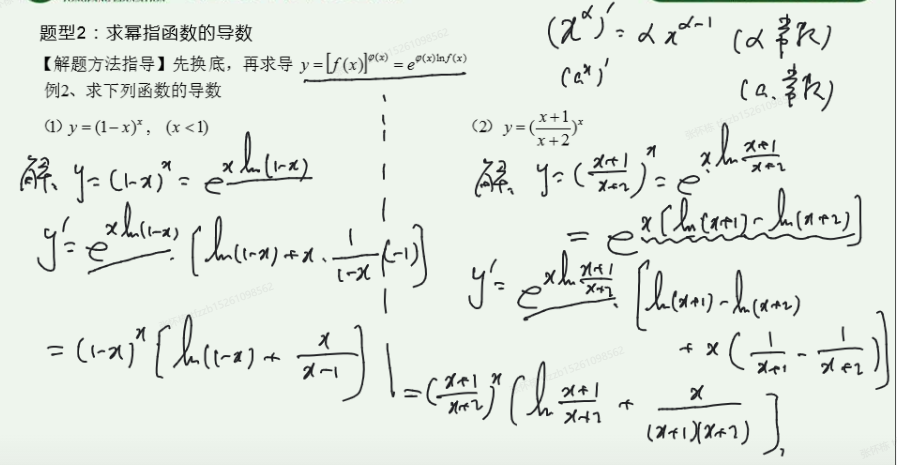 题型2：求幂指函数的导数
【解题方法指导】先换底，再求导 y=[f(x)]^{φ(x)}=e^{φ(x)lnf(x)}
(x^α)'=αx^{α-1} (α常数)
(a^x)' (a.常数)
例2、求下列函数的导数
(1) y=(1-x)^x, (x<1)
解、y=(1-x)^x=e^{xln(1-x)}
y'=e^{xln(1-x)}·[ln(1-x)+x·\frac{1}{1-x}(-1)]
=(1-x)^x[ln(1-x)+\frac{x}{x-1}]
(2) y=(\frac{x+1}{x+2})^x
解、y=(\frac{x+1}{x+2})^x=e^{x·ln\frac{x+1}{x+2}}
=e^{x[ln(x+1)-ln(x+2)]}
y'=e^{xln\frac{x+1}{x+2}}·[ln(x+1)-ln(x+2)
+x(\frac{1}{x+1}-\frac{1}{x+2})]
=(\frac{x+1}{x+2})^x[ln\frac{x+1}{x+2}+\frac{x}{(x+1)(x+2)}],